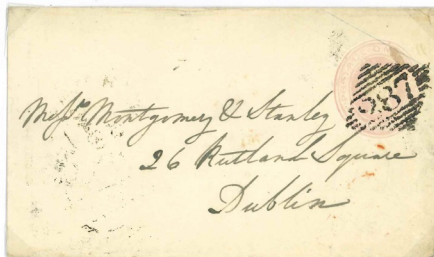 287
Messrs Montgomery & Stanley
26 Rutland Square
Dublin